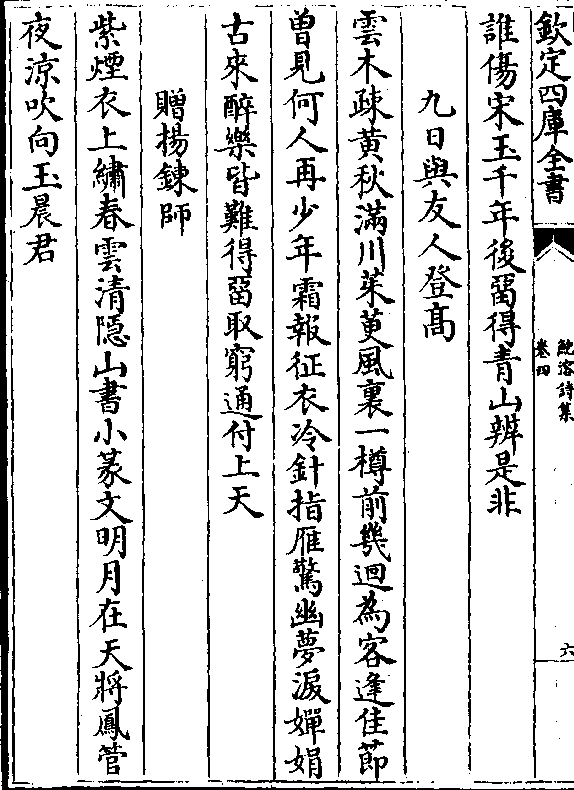 欽定四庫全書
鮑溶詩集
卷四
六
誰傷宋玉千年後留得青山辨是非
九日與友人登髙
雲木疎黄秋滿川茱萸風裏一樽前幾迴為客逢佳節
曽見何人再少年霜報征衣冷針指雁驚幽夢淚嬋娟
古來醉樂皆難得留取窮通付上天
贈楊鍊師
紫煙衣上繡春雲清隠山書小篆文明月在天將鳳管
夜涼吹向玉晨君